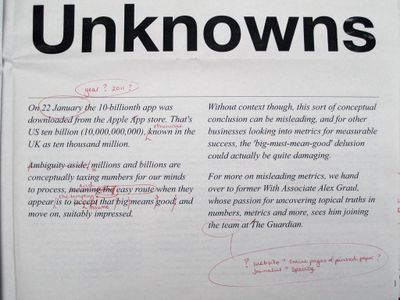 Unknowns
year? 2011?
On 22 January the 10-billionth app was
downloaded from the Apple App store. That's
otherwise
US ten billion (10,000,000,000), known in the
UK as ten thousand million.
Ambiguity aside, millions and billions are
conceptually taxing numbers for our minds
and
to process, meaning the easy route when they
the tempting
appear is to accept that big means good, and
assume
move on, suitably impressed.
Without context though, this sort of conceptual
conclusion can be misleading, and for other
businesses looking into metrics for measurable
success, the 'big-must-mean-good' delusion
could actually be quite damaging.
For more on misleading metrics, we hand
over to former With Associate Alex Graul,
whose passion for uncovering topical truths in
numbers, metrics and more, sees him joining
the team at The Guardian.
? website? Online pages of printed paper?
Journalist? Specify